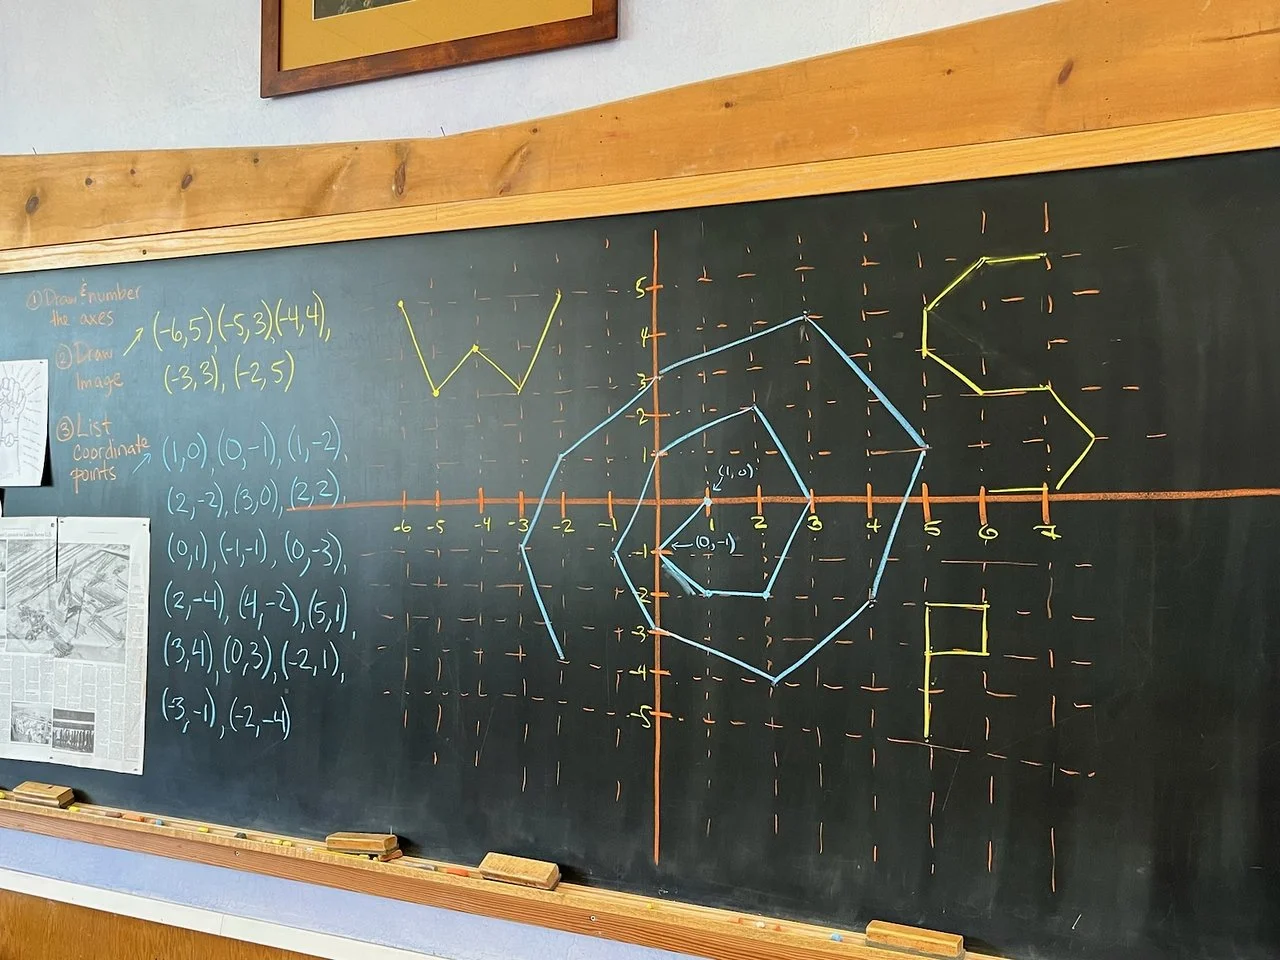 ① Draw & number
the axes
② Draw
Image
③ List
coordinate
points
(-6,5) (-5,3) (-4,4),
(-3,3), (-2,5)
(1,0), (0,-1), (1,-2),
(2,-2), (3,0), (2,2),
(0,1), (-1,-1), (0,-3),
(2,-4), (4,-2), (5,1),
(3,4), (0,3), (-2,1),
(-3,-1), (-2,-4)
5
4
3
2
1
(1,0)
-6 -5 -4 -3 -2 -1 1 2 3 4 5 6 7
-1 (0,-1)
-2
-3
-4
-5
W
S
P